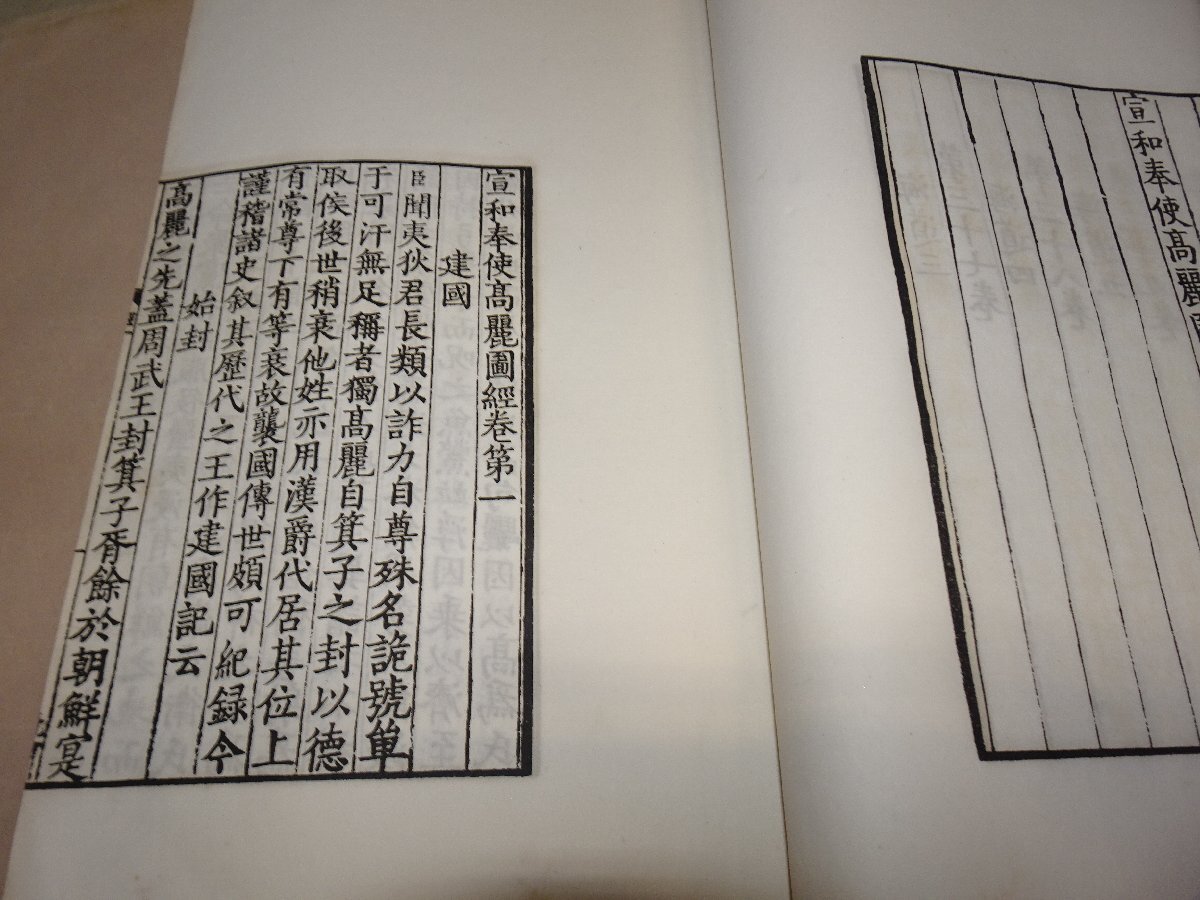 宣和奉使髙麗
宣和奉使髙麗圖經卷第一
建國
臣聞夷狄君長類以詐力自尊殊名詭號單
于可汗無足稱者獨髙麗自箕子之封以德
取侯後世稍衰他姓亦用漢爵代居其位上
有常尊下有等衰故襲國傳世頗可紀録今
謹稽諸史叙其歷代之王作建國記云
始封
髙麗之先蓋周武王封箕子胥餘於朝鮮寔